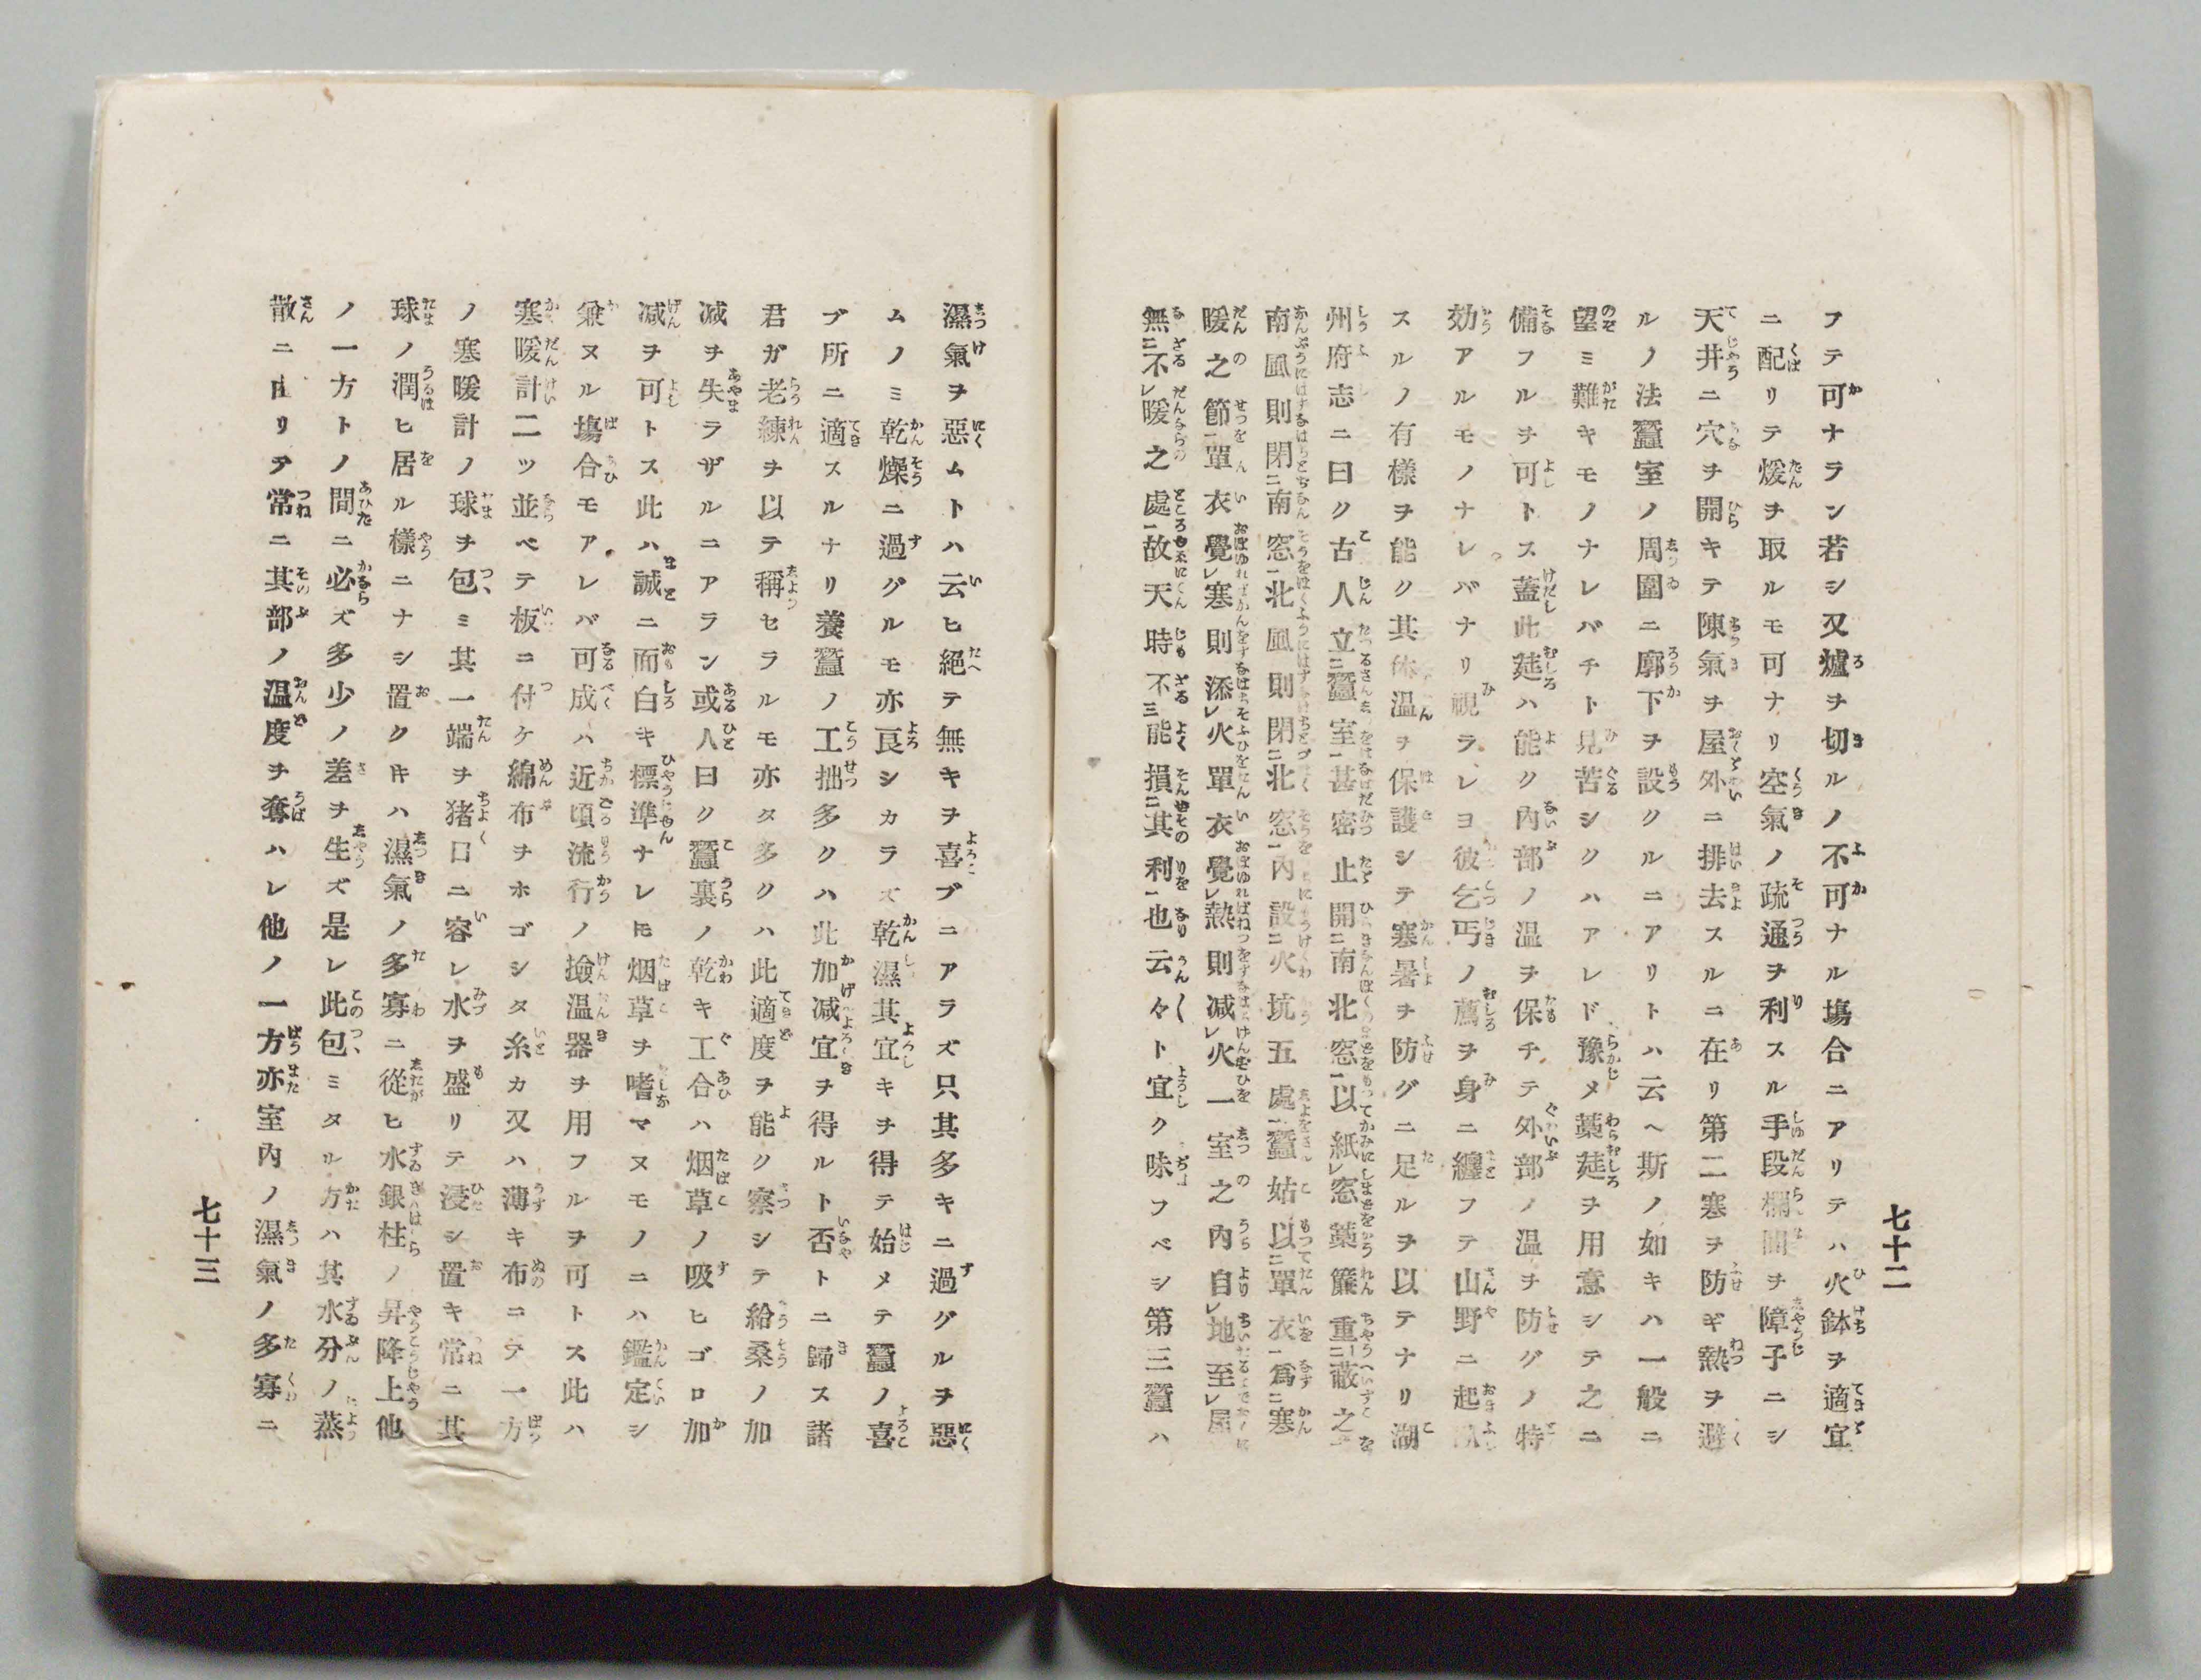 七十二
フテ可ナラン若シ又爐ヲ切ルノ不可ナル塲合ニアリテハ火鉢ヲ適宜
ニ配リテ煖ヲ取ルモ可ナリ空氣ノ疏通ヲ利スル手段欄間ヲ障子ニシ
天井ニ穴ヲ開キテ陳氣ヲ屋外ニ排去スルニ在リ第二寒ヲ防ギ熱ヲ避
ルノ法蠶室ノ周圍ニ廓下ヲ設クルニアリトハ云ヘ斯ノ如キハ一般ニ
望ミ難キモノナレバチト見苦シクハアレド豫メ藁莚ヲ用意シテ之ニ
備フルヲ可トス蓋此莚ハ能ク內部ノ温ヲ保チテ外部ノ温ヲ防グノ特
効アルモノナレバナリ視ラレヨ彼乞丐ノ薦ヲ身ニ纏フテ山野ニ起
スルノ有樣ヲ能ク其体温ヲ保護シテ寒暑ヲ防グニ足ルヲ以テナリ湖
州府志ニ曰ク古人立二蠶室一甚密止開二南北窓一以紙レ窓藁簾重二蔽之一
南風則閉二南窓一北風則閉二北窓一內設二火坑五處一蠶姑以二單衣一爲二寒
暖之節一單衣覺レ寒則添レ火單衣覺レ熱則减レ火一室之內自レ地至レ屋
無二不レ暖之處一故天時不三能損二其利一也云々ト宜ク味フベシ第三蠶ハ
濕氣ヲ惡ムトハ云ヒ絕テ無キヲ喜ブニアラズ只其多キニ過グルヲ惡
ムノミ乾燥ニ過グルモ亦良シカラズ乾濕其宜キヲ得テ始メテ蠶ノ喜
ブ所ニ適スルナリ養蠶ノ工拙多クハ此加减宜ヲ得ルト否トニ歸ス諸
君ガ老練ヲ以テ稱セラルモ亦タ多クハ此適度ヲ能ク察シテ給桑ノ加
减ヲ失ラザルニアラン或人曰ク蠶裏ノ乾キ工合ハ烟草ノ吸ヒゴロ加
减ヲ可トス此ハ誠ニ面白キ標準ナレ𪜈烟草ヲ嗜マヌモノニハ鑑定シ
兼ヌル塲合モアレバ可成ハ近頃流行ノ撿温器ヲ用フルヲ可トス此ハ
寒暖計二ツ並ベテ板ニ付ケ綿布ヲホゴシタ糸カ又ハ薄キ布ニテ一方
ノ寒暖計ノ球ヲ包ミ其一端ヲ猪口ニ容レ水ヲ盛リテ浸シ置キ常ニ其
球ノ潤ヒ居ル樣ニナシ置クキハ濕氣ノ多寡ニ從ヒ水銀柱ノ昇降上他
ノ一方トノ間ニ必ズ多少ノ差ヲ生ズ是レ此包ミタル方ハ其水分ノ蒸
散ニ由リテ常ニ其部ノ温度ヲ奪ハレ他ノ一方亦室內ノ濕氣ノ多寡ニ
七十三